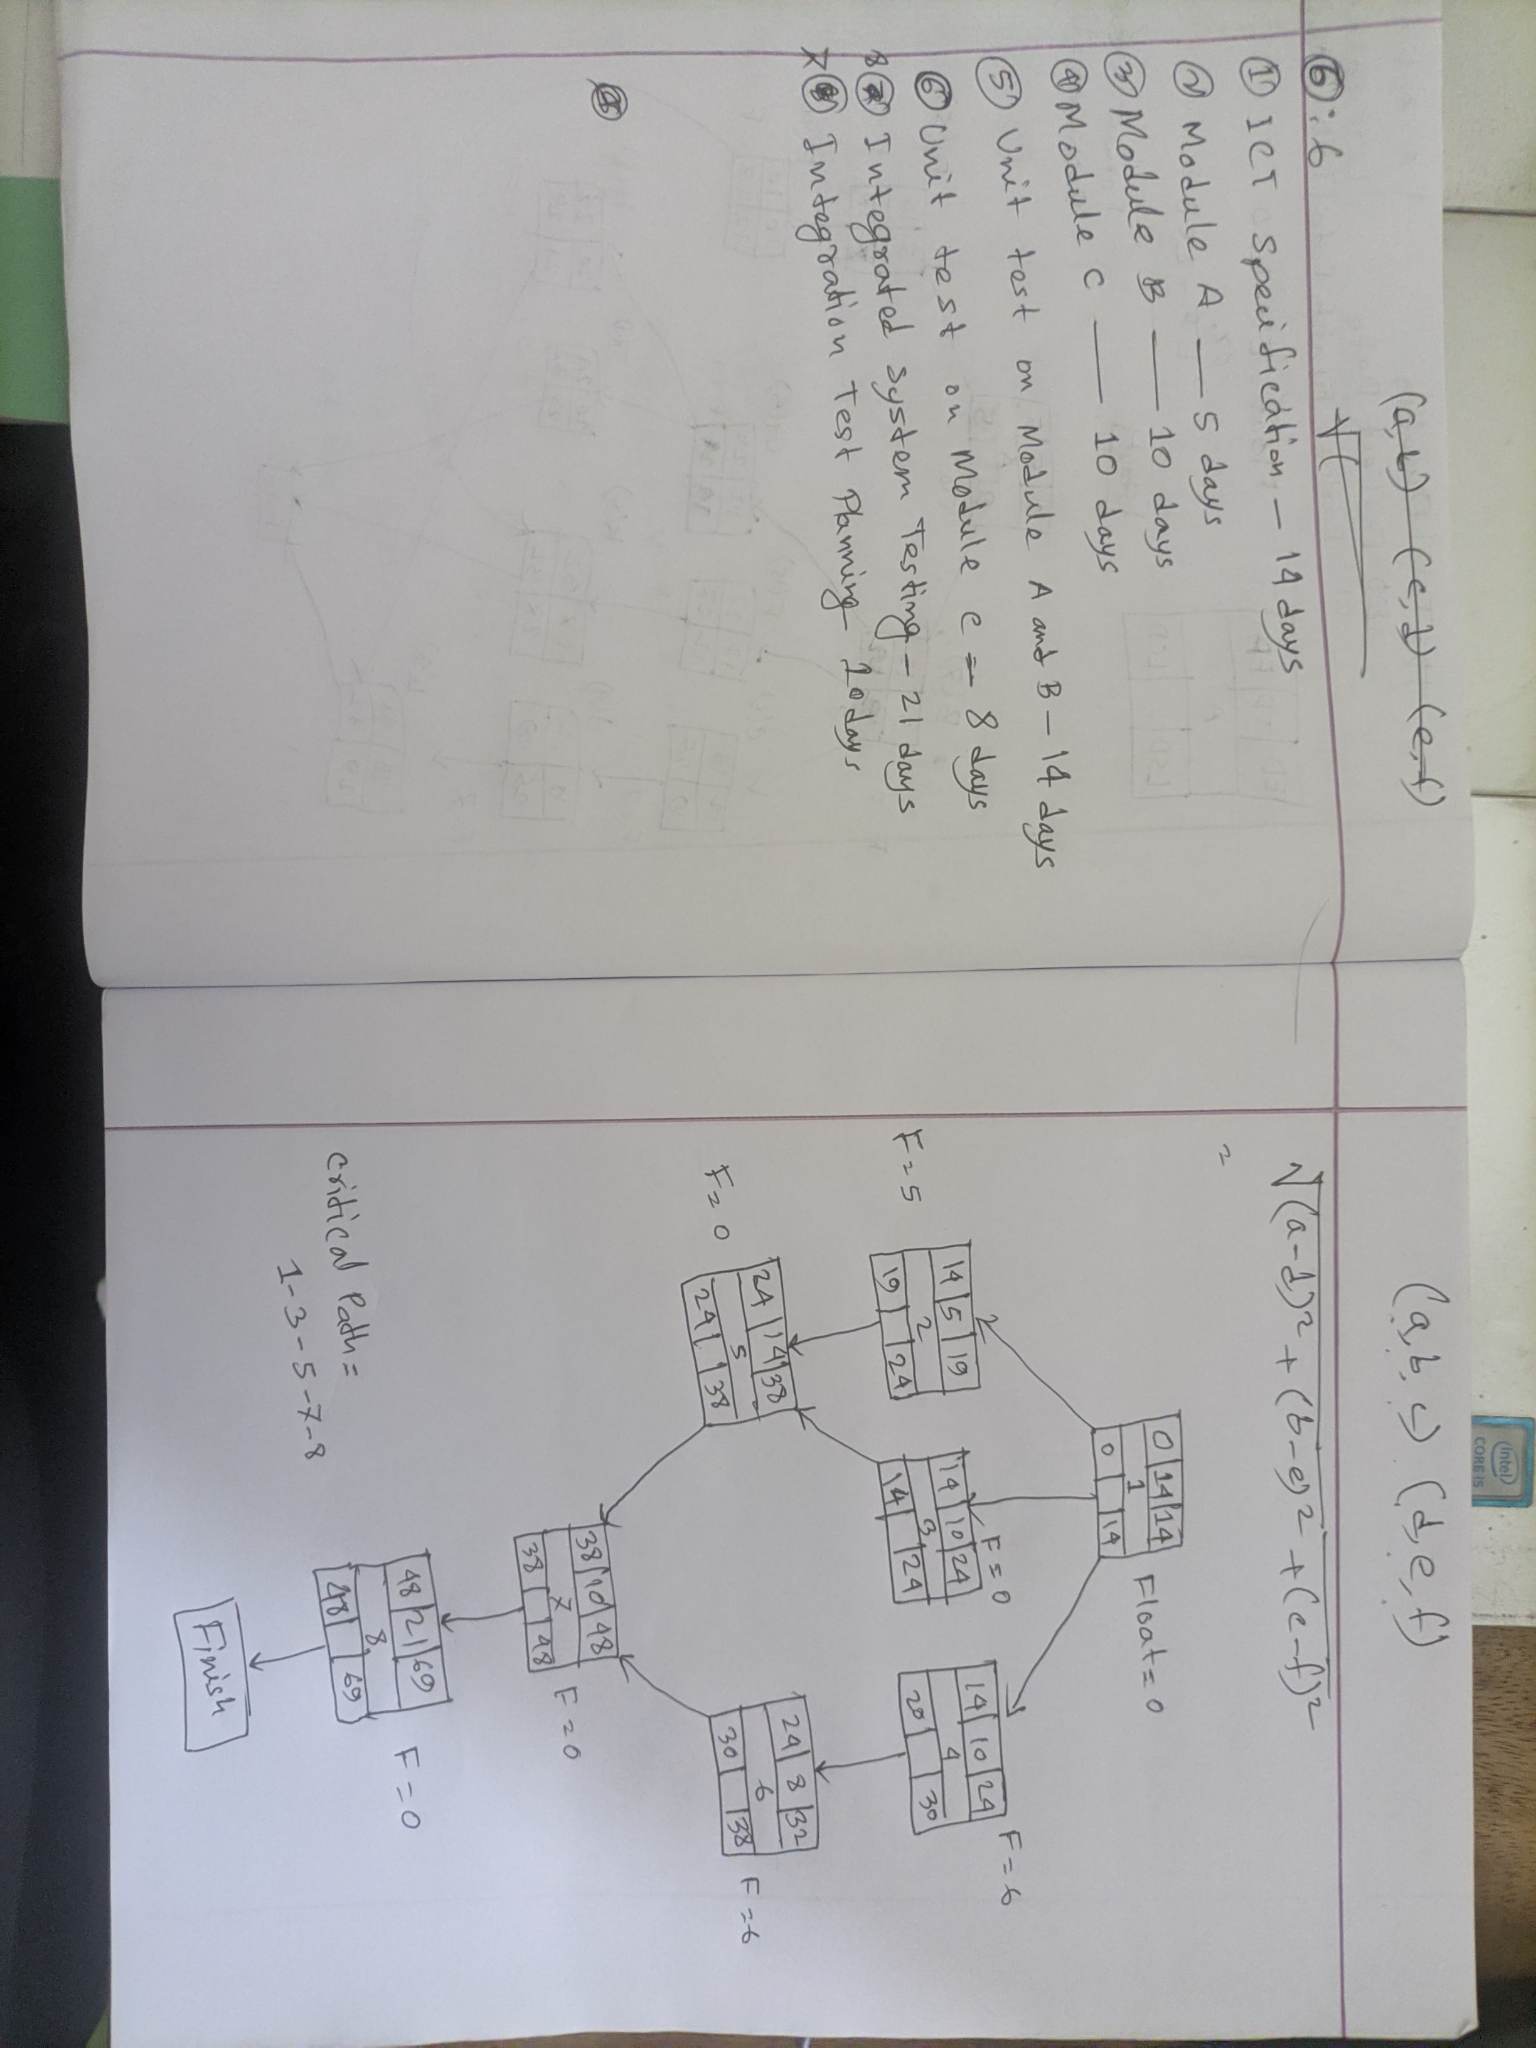 (a,b) (c,d) (e,f)
√(
⑥: 6
① ICT Specification - 14 days
② Module A — 5 days
③ Module B — 10 days
④ Module C — 10 days
⑤ Unit test on Module A and B - 14 days
⑥ Unit test on Module C - 8 days
8 Integrated System Testing - 21 days
7 Integration Test Planning - 10 days
(a,b,c) (d,e,f)
√(a-d)² + (b-e)² + (c-f)²
=
0 14 14
1
0 14
Float = 0
14 5 19
2
19 24
F = 5
14 10 24
3
14 24
F = 0
14 10 24
4
20 30
F = 6
24 14 38
5
24 38
F = 0
24 8 32
6
30 38
F = 6
38 10 48
7
38 48
F = 0
48 21 69
8
48 69
F = 0
Finish
Critical Path =
1-3-5-7-8
intel
CORE i5